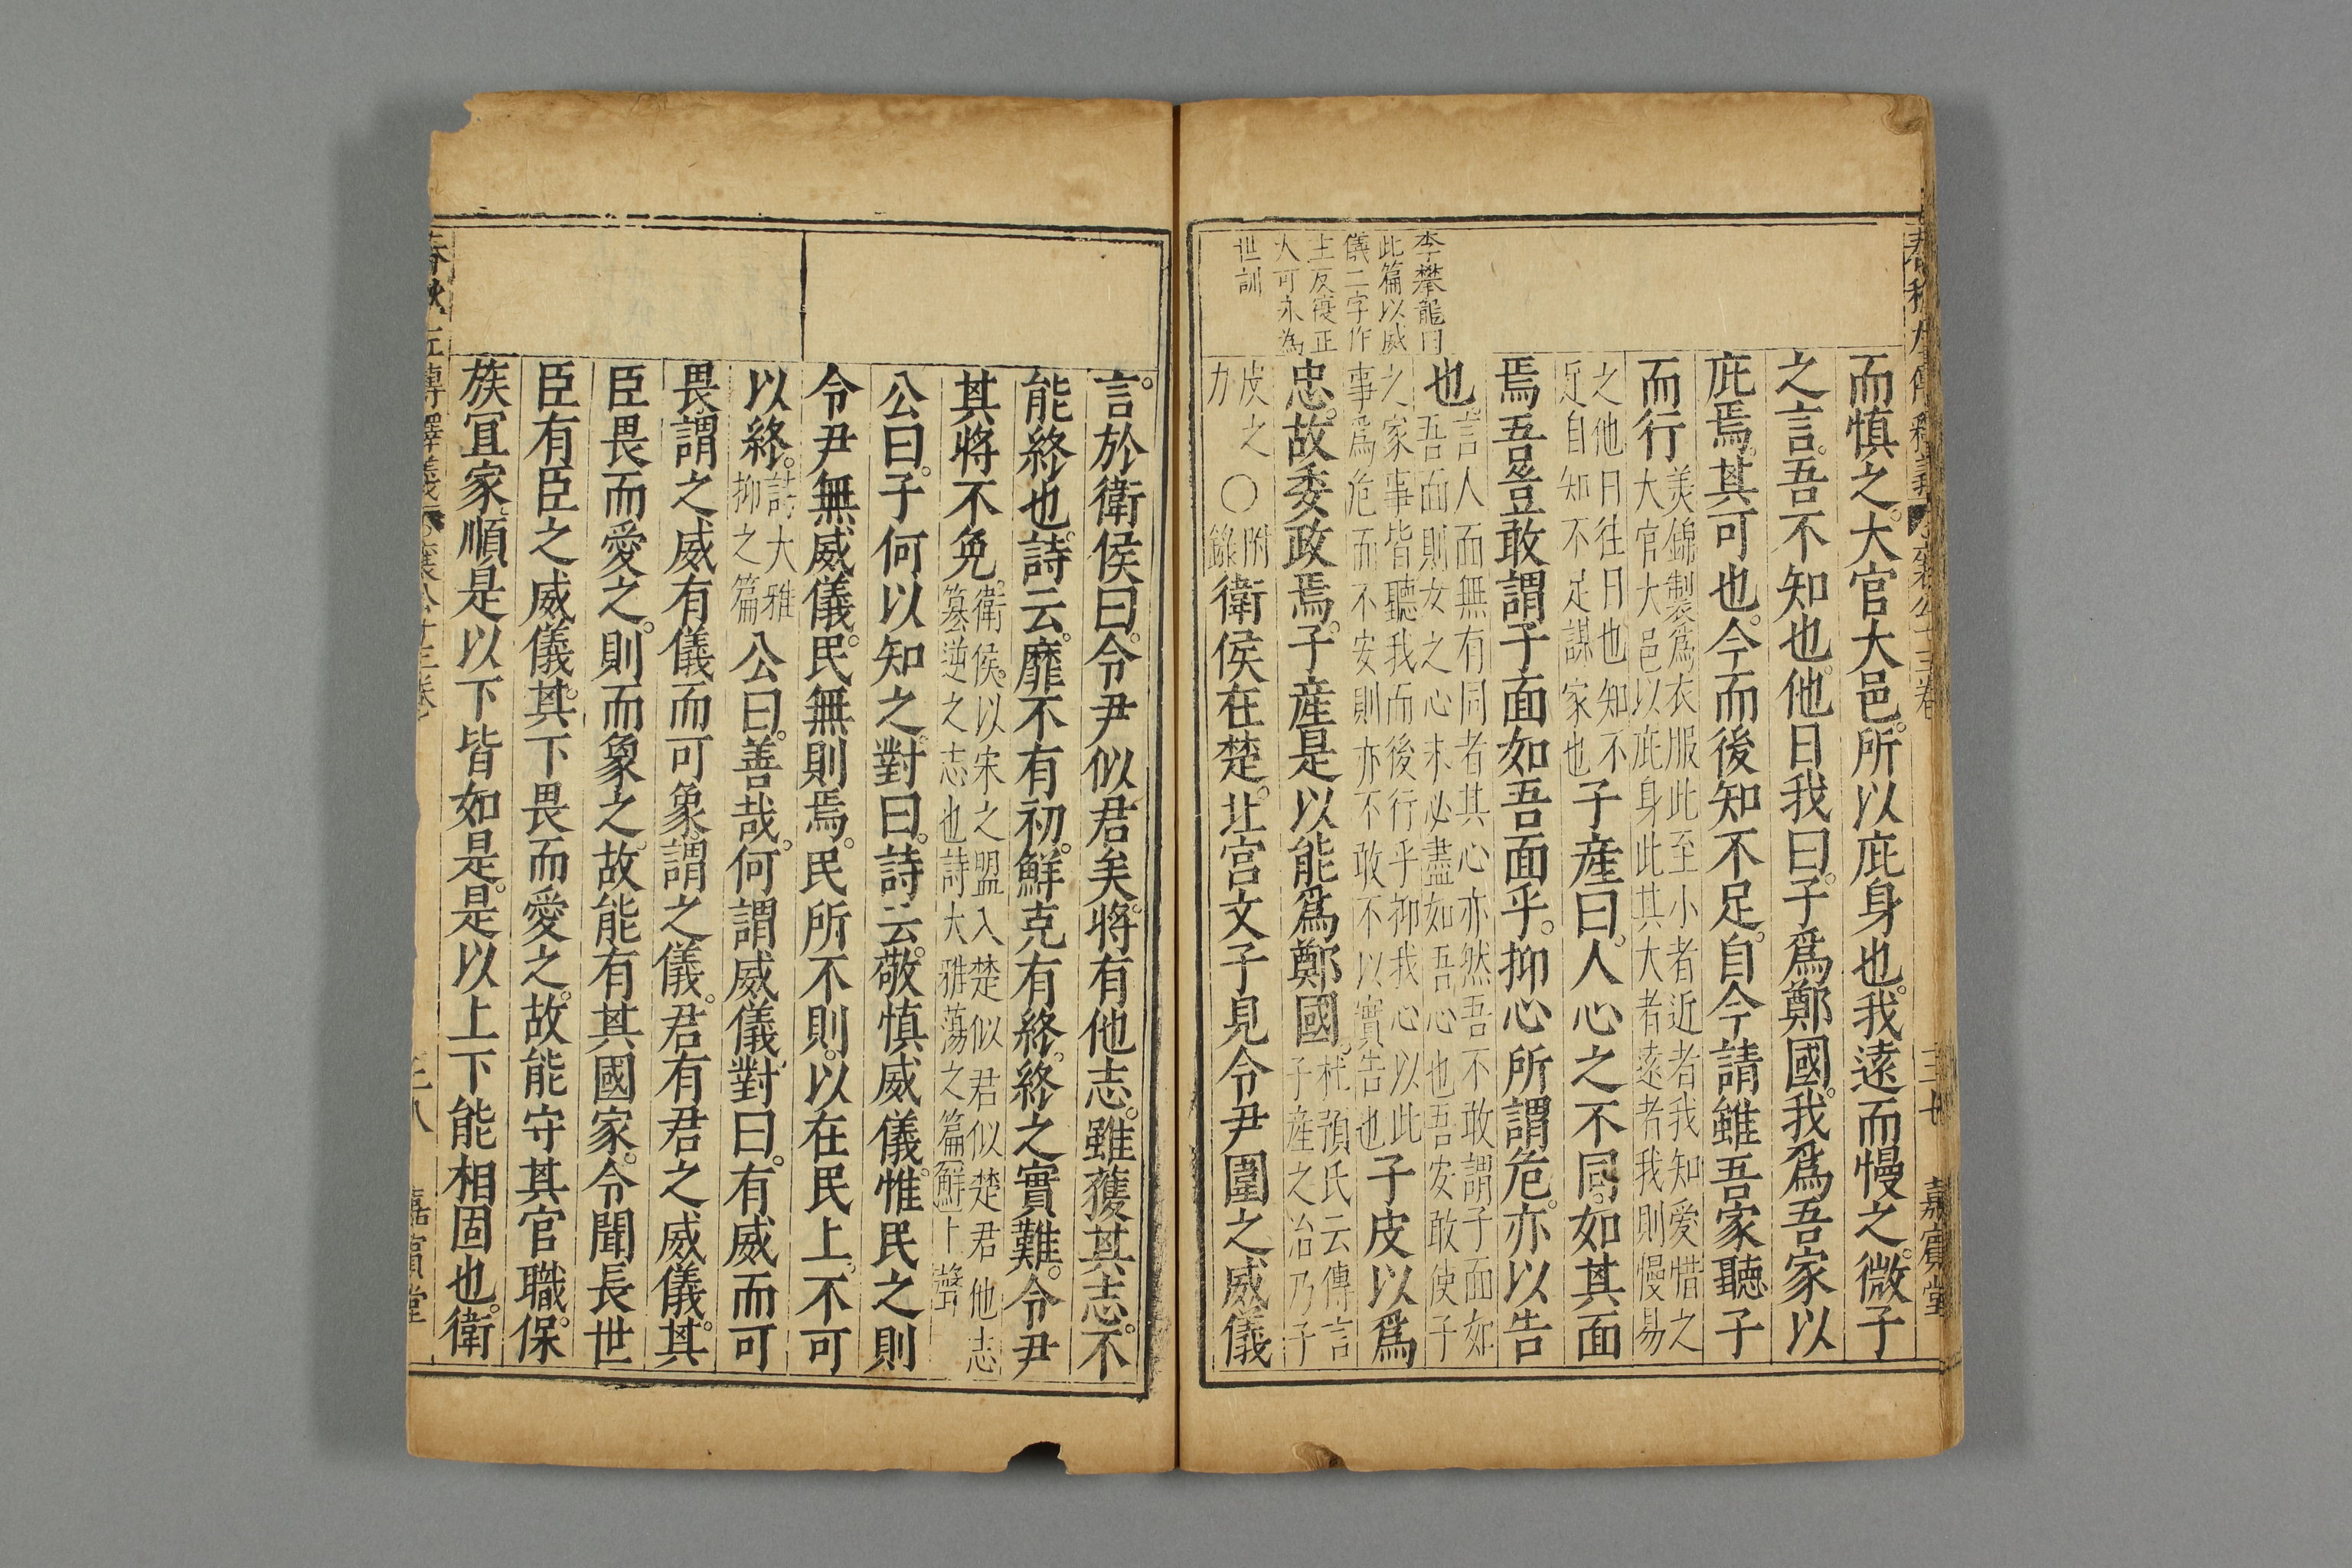 春秋左傳釋義 襄公十三卷 三七 嘉賓堂
李攀龍曰
此篇以威
儀二字作
主反復正
大可永為
世訓
而慎之。大官大邑。所以庇身也。我遠而慢之。微子
之言。吾不知也。他日我曰。子爲鄭國。我爲吾家。以
庇焉。其可也。今而後知不足。自今請雖吾家聽子
而行美錦製爲衣服此至小者近者我知愛惜之
大官大邑以庇身此其大者遠者我則慢易
之他日往日也知不
近自知不足謀家也子產曰。人心之不同。如其面
焉。吾豈敢謂子面如吾面乎。抑心所謂危。亦以告
也言人面無有同者其心亦然吾不敢謂子面如
吾面則女之心未必盡如吾心也吾安敢使子
之家事皆聽我而後行乎抑我心以此
事爲危而不安則亦不敢不以實告也子皮以爲
忠。故委政焉。子產是以能爲鄭國。杜預氏云傳言
子產之治乃子
皮之
力〇附
錄衛侯在楚。北宮文子見令尹圍之威儀
言。於衛侯曰。令尹似君矣。將有他志。雖獲其志。不
能終也。詩云。靡不有初。鮮克有終。終之實難。令尹
其將不免。衛侯以宋之盟入楚似君似楚君他志
篡逆之志也詩大雅蕩之篇鮮上聲
公曰。子何以知之。對曰。詩云。敬慎威儀。惟民之則
令尹無威儀。民無則焉。民所不則。以在民上。不可
以終。詩大雅
抑之篇公曰。善哉。何謂威儀。對曰。有威而可
畏謂之威。有儀而可象謂之儀。君有君之威儀。其
臣畏而愛之。則而象之。故能有其國家。令聞長世
臣有臣之威儀。其下畏而愛之。故能守其官職。保
族宜家。順是以下皆如是。是以上下能相固也。衛
春秋左傳釋義 襄公十三卷 三八 嘉賓堂